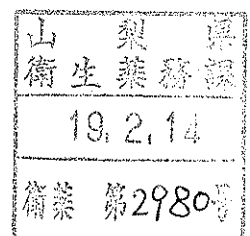 山梨県
衛生薬務課
19.2.14
衛薬 第2980号